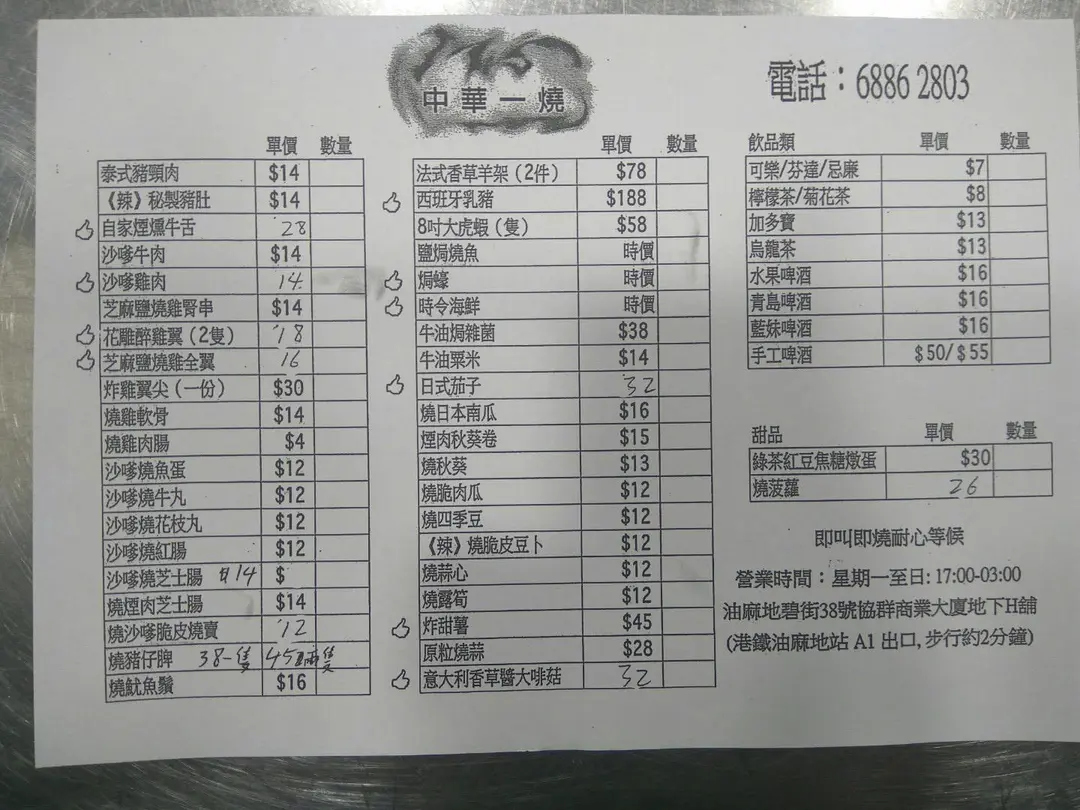 中華一燒
電話：6886 2803
單價 數量
泰式豬頸肉 $14
《辣》秘製豬肚 $14
自家煙燻牛舌 28
沙嗲牛肉 $14
沙嗲雞肉 14
芝麻鹽燒雞腎串 $14
花雕醉雞翼（2隻） 18
芝麻鹽燒雞全翼 16
炸雞翼尖（一份） $30
燒雞軟骨 $14
燒雞肉腸 $4
沙嗲燒魚蛋 $12
沙嗲燒牛丸 $12
沙嗲燒花枝丸 $12
沙嗲燒紅腸 $12
沙嗲燒芝士腸 $14 $
燒煙肉芝士腸 $14
燒沙嗲脆皮燒賣 12
燒豬仔脾 38一隻 45兩隻
燒魷魚鬚 $16
單價 數量
法式香草羊架（2件） $78
西班牙乳豬 $188
8吋大虎蝦（隻） $58
鹽焗燒魚 時價
焗蠔 時價
時令海鮮 時價
牛油焗雜菌 $38
牛油粟米 $14
日式茄子 32
燒日本南瓜 $16
煙肉秋葵卷 $15
燒秋葵 $13
燒脆肉瓜 $12
燒四季豆 $12
《辣》燒脆皮豆卜 $12
燒蒜心 $12
燒露筍 $12
炸甜薯 $45
原粒燒蒜 $28
意大利香草醬大啡菇 32
飲品類 單價 數量
可樂/芬達/忌廉 $7
檸檬茶/菊花茶 $8
加多寶 $13
烏龍茶 $13
水果啤酒 $16
青島啤酒 $16
藍妹啤酒 $16
手工啤酒 $50/$55
甜品 單價 數量
綠茶紅豆焦糖燉蛋 $30
燒菠蘿 26
即叫即燒耐心等候
營業時間：星期一至日: 17:00-03:00
油麻地碧街38號協群商業大廈地下H舖
(港鐵油麻地站 A1 出口, 步行約2分鐘)